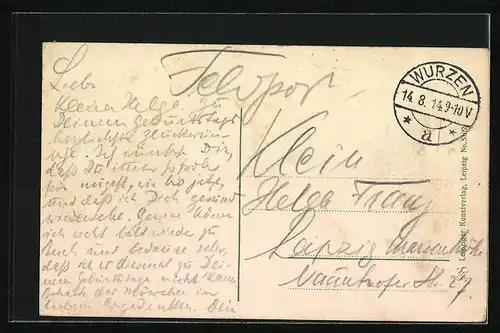 Feldpost
WURZEN
14.8.14.9-10V
* a *
Liebe
kleine Helga. Zu
Deinem Geburtstage
herzlichste Glückwün-
sche. Ich wünsche Dir,
daß Du immer so froh
sein mögest, wie bis jetzt,
und daß ich Dich gesund
wiedersehe. Gerne käme
ich recht bald wieder zu
Euch und bedaure sehr,
daß ich es diesmal zu Dei-
nem Geburtstage nicht kann
Behalte das
Dein
Klein
Helga Franz
Leipzig
Naunhofer Str. 27.
Leipziger Kunstverlag, Leipzig No.